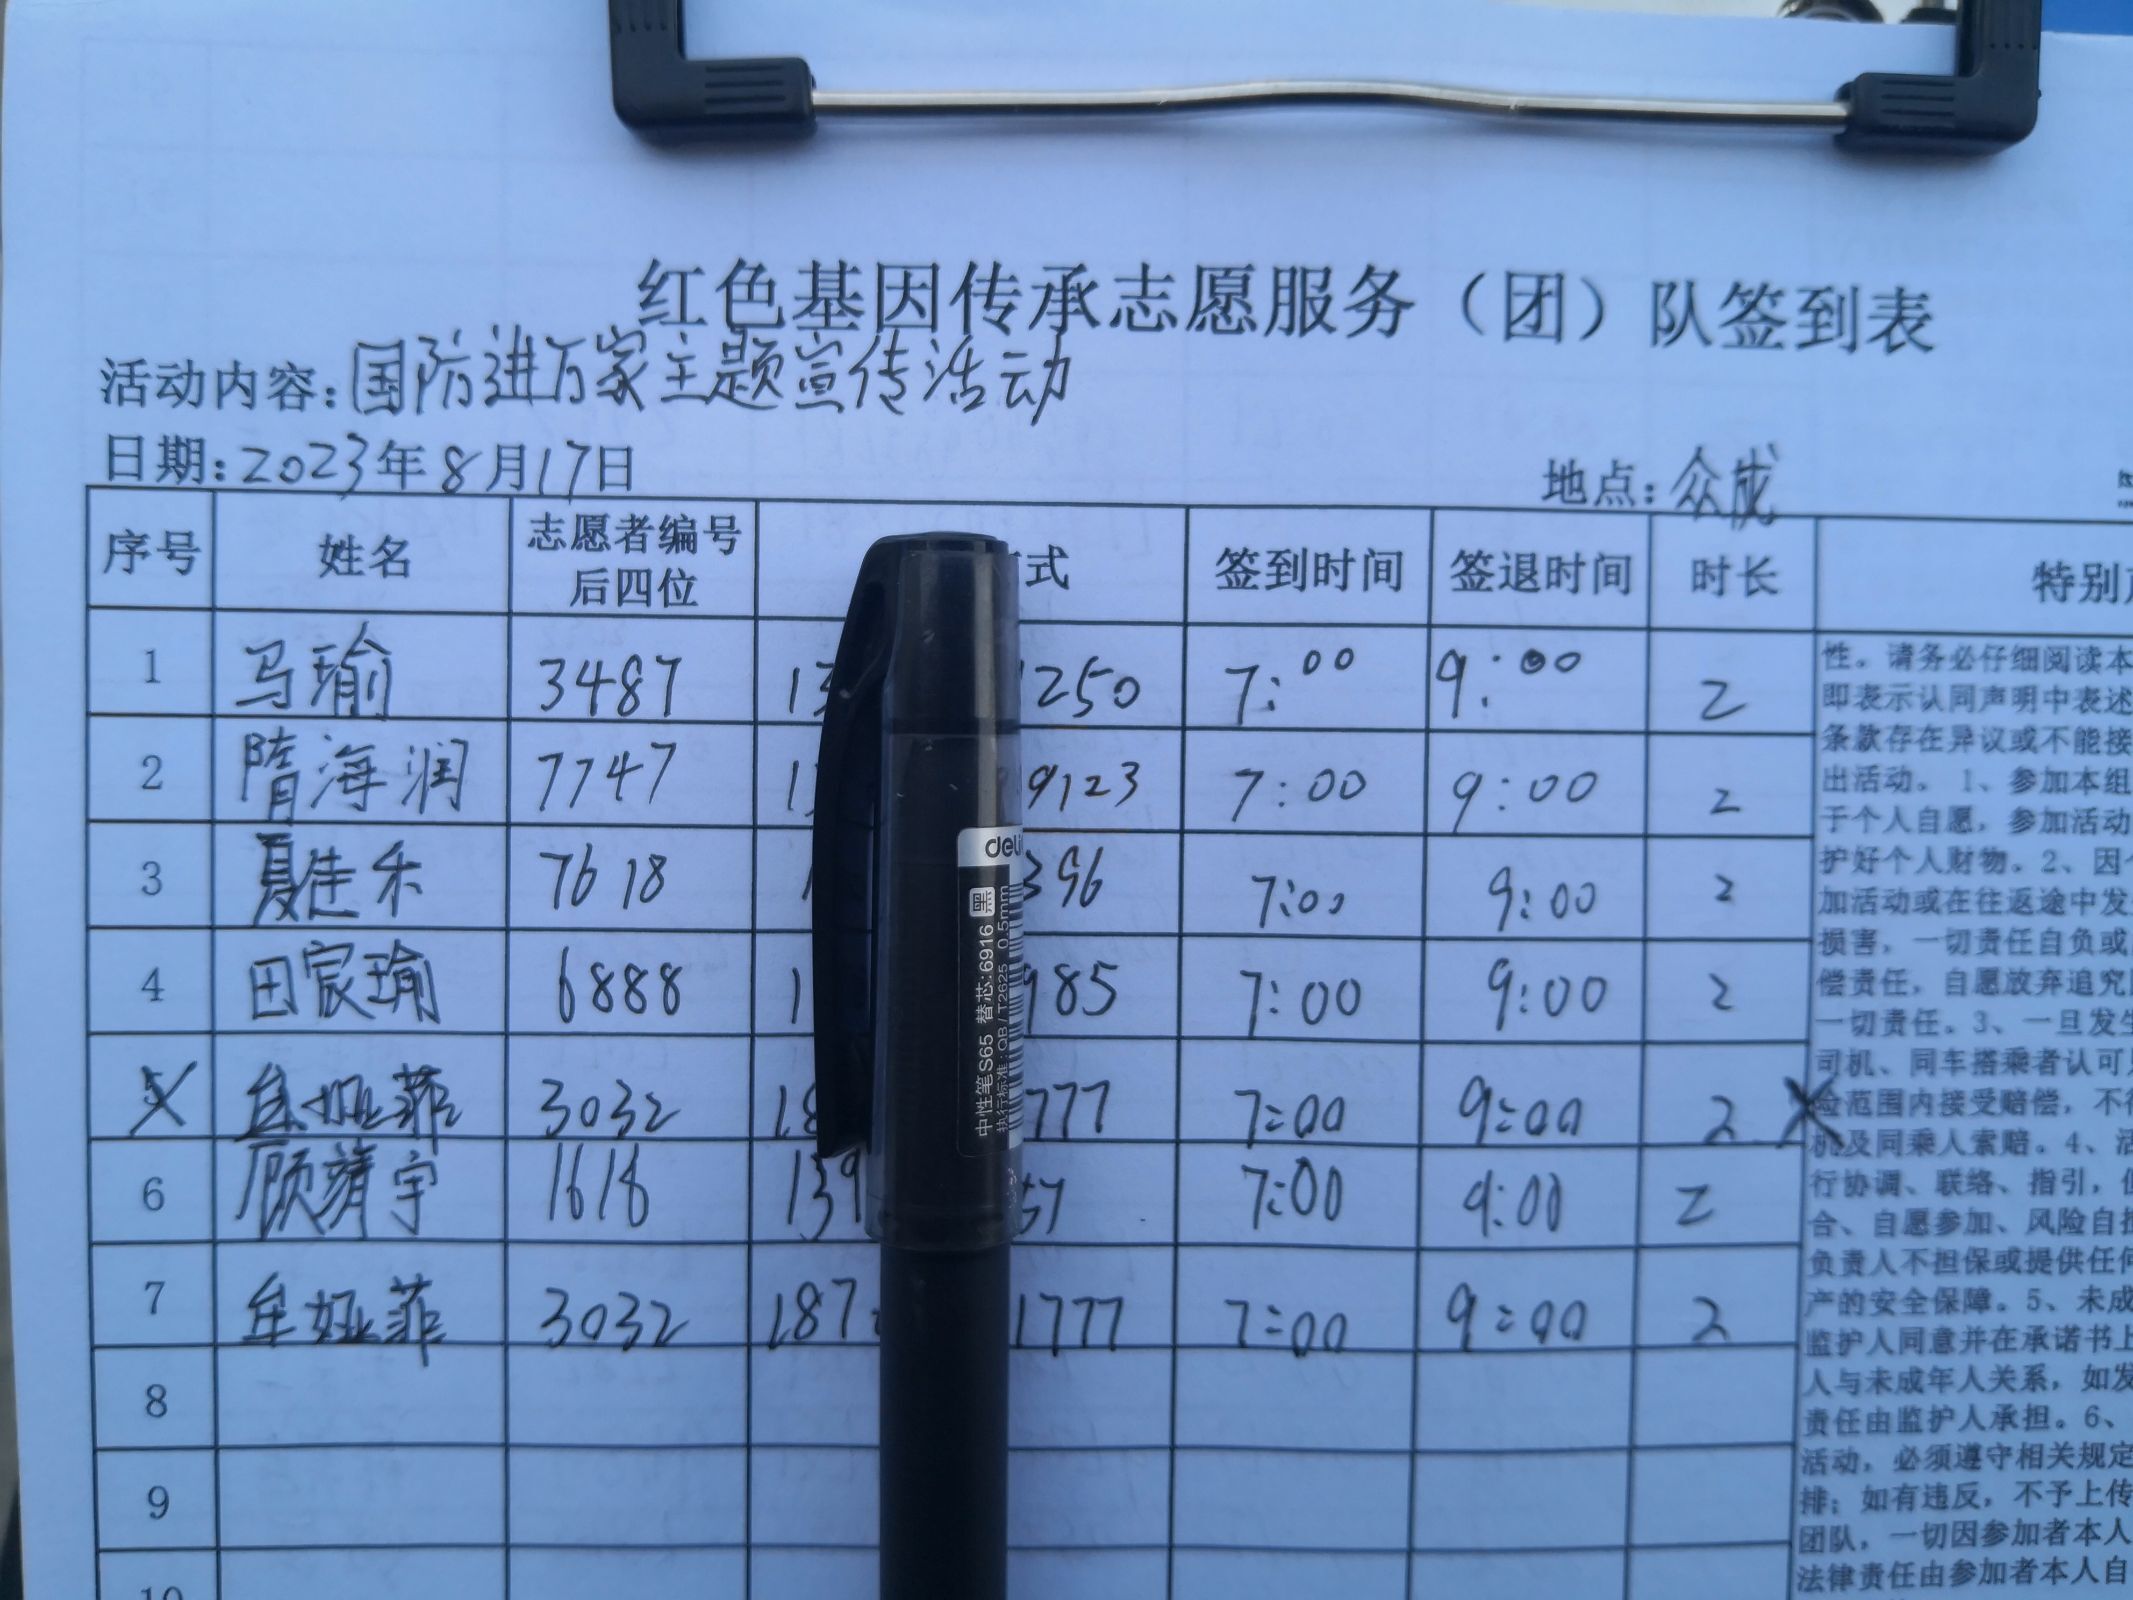 红色基因传承志愿服务（团）队签到表
活动内容:国防进万家主题宣传活动
日期:2023年8月17日 地点:众成
序号 姓名 志愿者编号后四位 式 签到时间 签退时间 时长 特别
1 马瑜 3487 13 1250 7:00 9:00 2
2 隋海润 7747 1 9123 7:00 9:00 2
3 夏佳禾 7618 1 396 7:00 9:00 2
4 田宸瑜 6888 1 985 7:00 9:00 2
5 牟娅菲 3032 18 777 7:00 9:00 2
6 顾靖宇 1618 139 57 7:00 9:00 2
7 牟娅菲 3032 187 1777 7:00 9:00 2
8
9
10
性。请务必仔细阅读本
即表示认同声明中表述
条款存在异议或不能接
出活动。1、参加本组
于个人自愿，参加活动
护好个人财物。2、因个
加活动或在往返途中发
损害，一切责任自负或
偿责任，自愿放弃追究
一切责任。3、一旦发生
司机、同车搭乘者认可
险范围内接受赔偿，不
机及同乘人索赔。4、活
行协调、联络、指引，但
合、自愿参加、风险自担
负责人不担保或提供任何
产的安全保障。5、未成
监护人同意并在承诺书上
人与未成年人关系，如发
责任由监护人承担。6、
活动，必须遵守相关规定
排；如有违反，不予上传
团队，一切因参加者本人
法律责任由参加者本人自
deli
中性笔S65 替芯:6916 黑
执行标准:QB/T2625 0.5mm